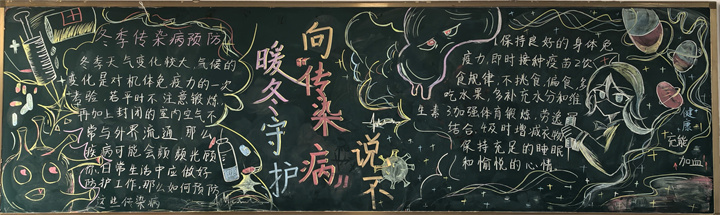 冬季传染病预防
冬季天气变化较大,气候的
变化是对机体免疫力的一次
考验,若平时不注意锻炼,
再加上封闭的室内空气不
常与外界流通,那么
疾病可能会频频光顾
你,日常生活中应做好
防护工作,那么如何预防
这些传染病
暖冬守护
向“传染病”
说不
1保持良好的身体免
疫力,即时接种疫苗2饮
食规律,不挑食,偏食,多
吃水果,多补充水分和维
生素 3加强体育锻炼,劳逸
结合,4及时增减衣物
保持充足的睡眠
和愉悦的心情
健康
充能
加血!